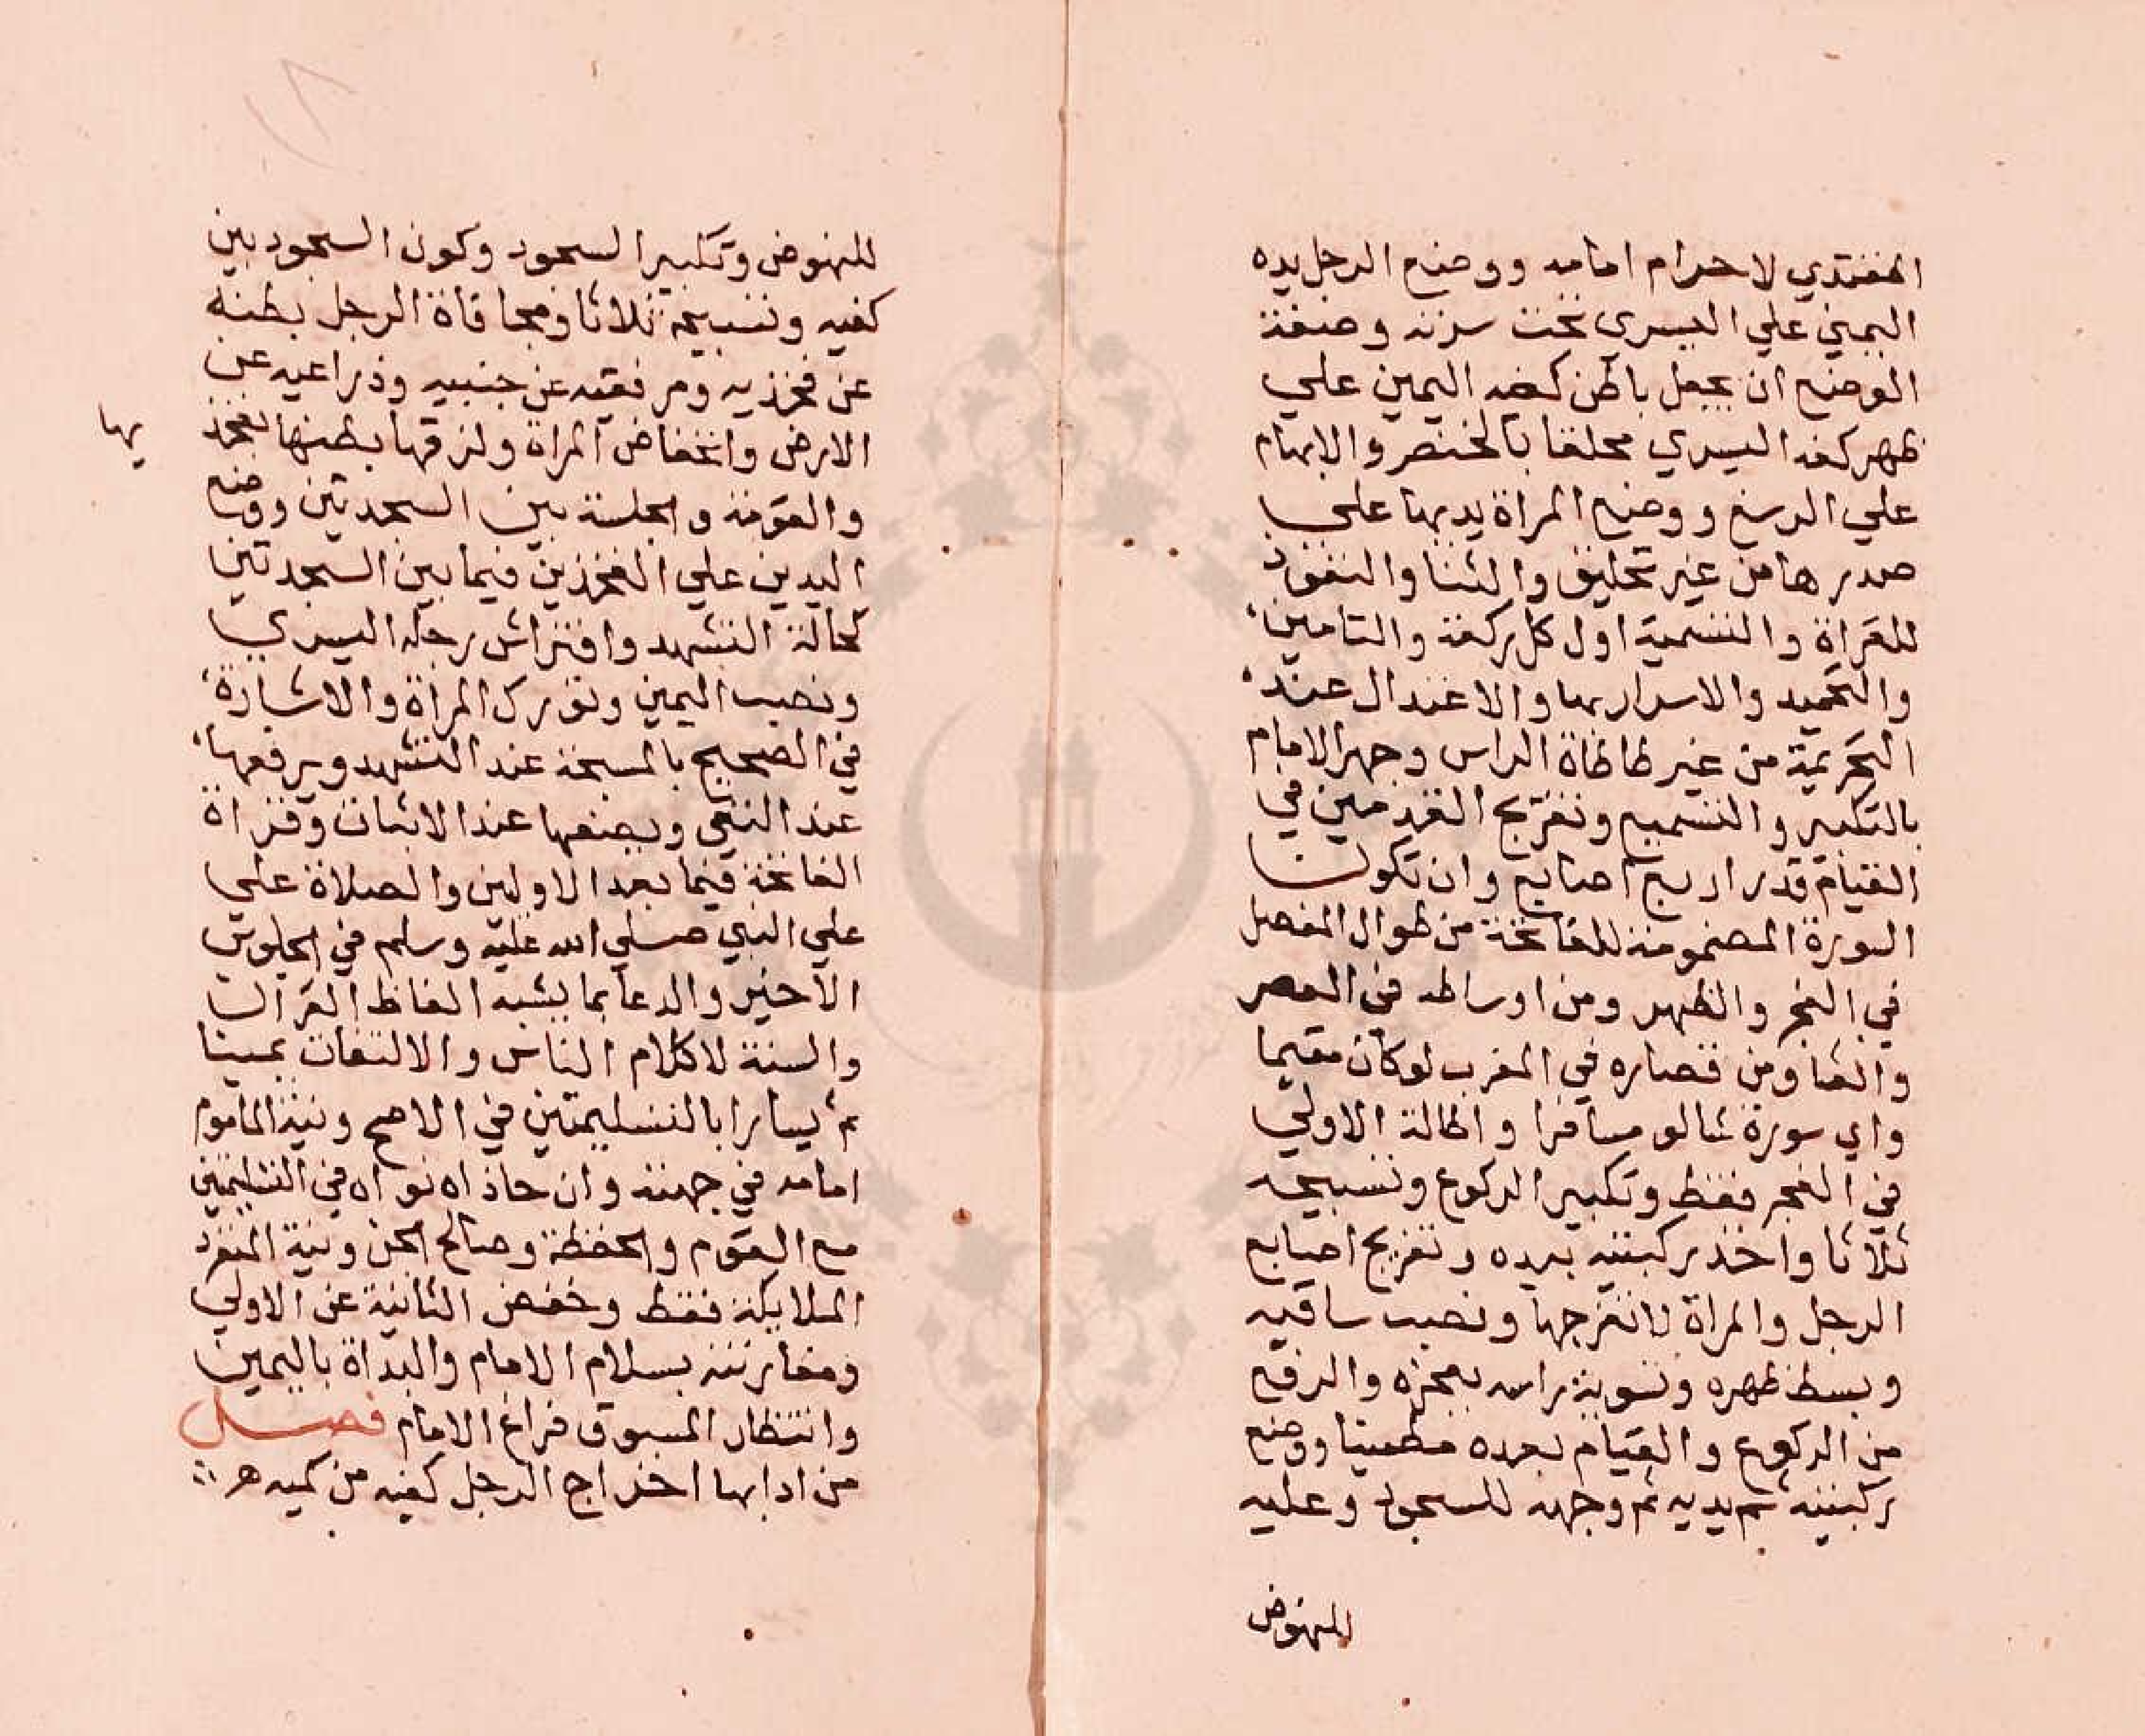 المقتدي لاحرام امامه ووضع الرجل يده
اليمني علي اليسرى تحت سرته وصفة
الوضع ان يجعل باطن كفه اليمين علي
ظهر كفه اليسري محلقا بالخنصر والابهام
علي الرسغ ووضع المراة يديها علي
صدرها من غير تحليق والثنا والتعوذ
للقراة والتسمية اول كل ركعة والتامين
والتحميد والاسرار بها والاعتدال عند
التحريمة من غير طاطاة الراس وجهر الامام
بالتكبير والتسميع وتفريج القدمين في
القيام قدر اربع اصابع وان تكون
السورة المضمومة للفاتحة من طوال المفصل
في الفجر والظهر ومن اوساطه في العصر
والعشا ومن قصاره في المغرب لو كان مقيما
واي سورة شا لو مسافرا واطالة الاولي
في الفجر فقط وتكبير الركوع وتسبيحه
ثلاثا واخذ ركبتيه بيده وتفريج اصابع
الرجل والمراة لا تفرجها ونصب ساقيه
وبسط ظهره وتسوية راسه بعجزه والرفع
من الركوع والقيام بعده مطمينا ووضع
ركبتيه ثم يديه ثم وجهه للسجود وعليه
للنهوض
٨١
للنهوض وتكبير السجود وكون السجود بين
كفيه وتسبيحه ثلاثا ومجافاة الرجل بطنه
عن فخذيه ومرفقيه عن جنبيه وذراعيه عن
الارض وانخفاض المراة ولزقها بطنها بفخذ
يها
والقومة والجلسة بين السجدتين ووضع
اليدين علي الفخذين فيما بين السجدتين
كحالة التشهد وافتراش رجله اليسري
ونصب اليمين وتورك المراة والاشارة
في الصحيح بالمسبحة عند التشهد ويرفعها
عند النفي ويضعها عند الاثبات وقراة
الفاتحة فيما بعد الاوليين والصلاة علي
علي النبي صلي الله عليه وسلم في الجلوس
الاخير والدعا بما يشبه الفاظ القران
والسنة لا كلام الناس والالتفات يمينا
ثم يسارا بالتسليمتين في الاصح ونية الماموم
امامه في جهته وان حاذاه نواه في التسليمتين
مع القوم والحفظة وصالح الجن ونية المنفرد
الملايكة فقط وخفض الثانية عن الاولي
ومقارنته بسلام الامام والبداة باليمين
وانتظار المسبوق فراغ الامام فصل
من ادابها اخراج الرجل كفيه من كميه